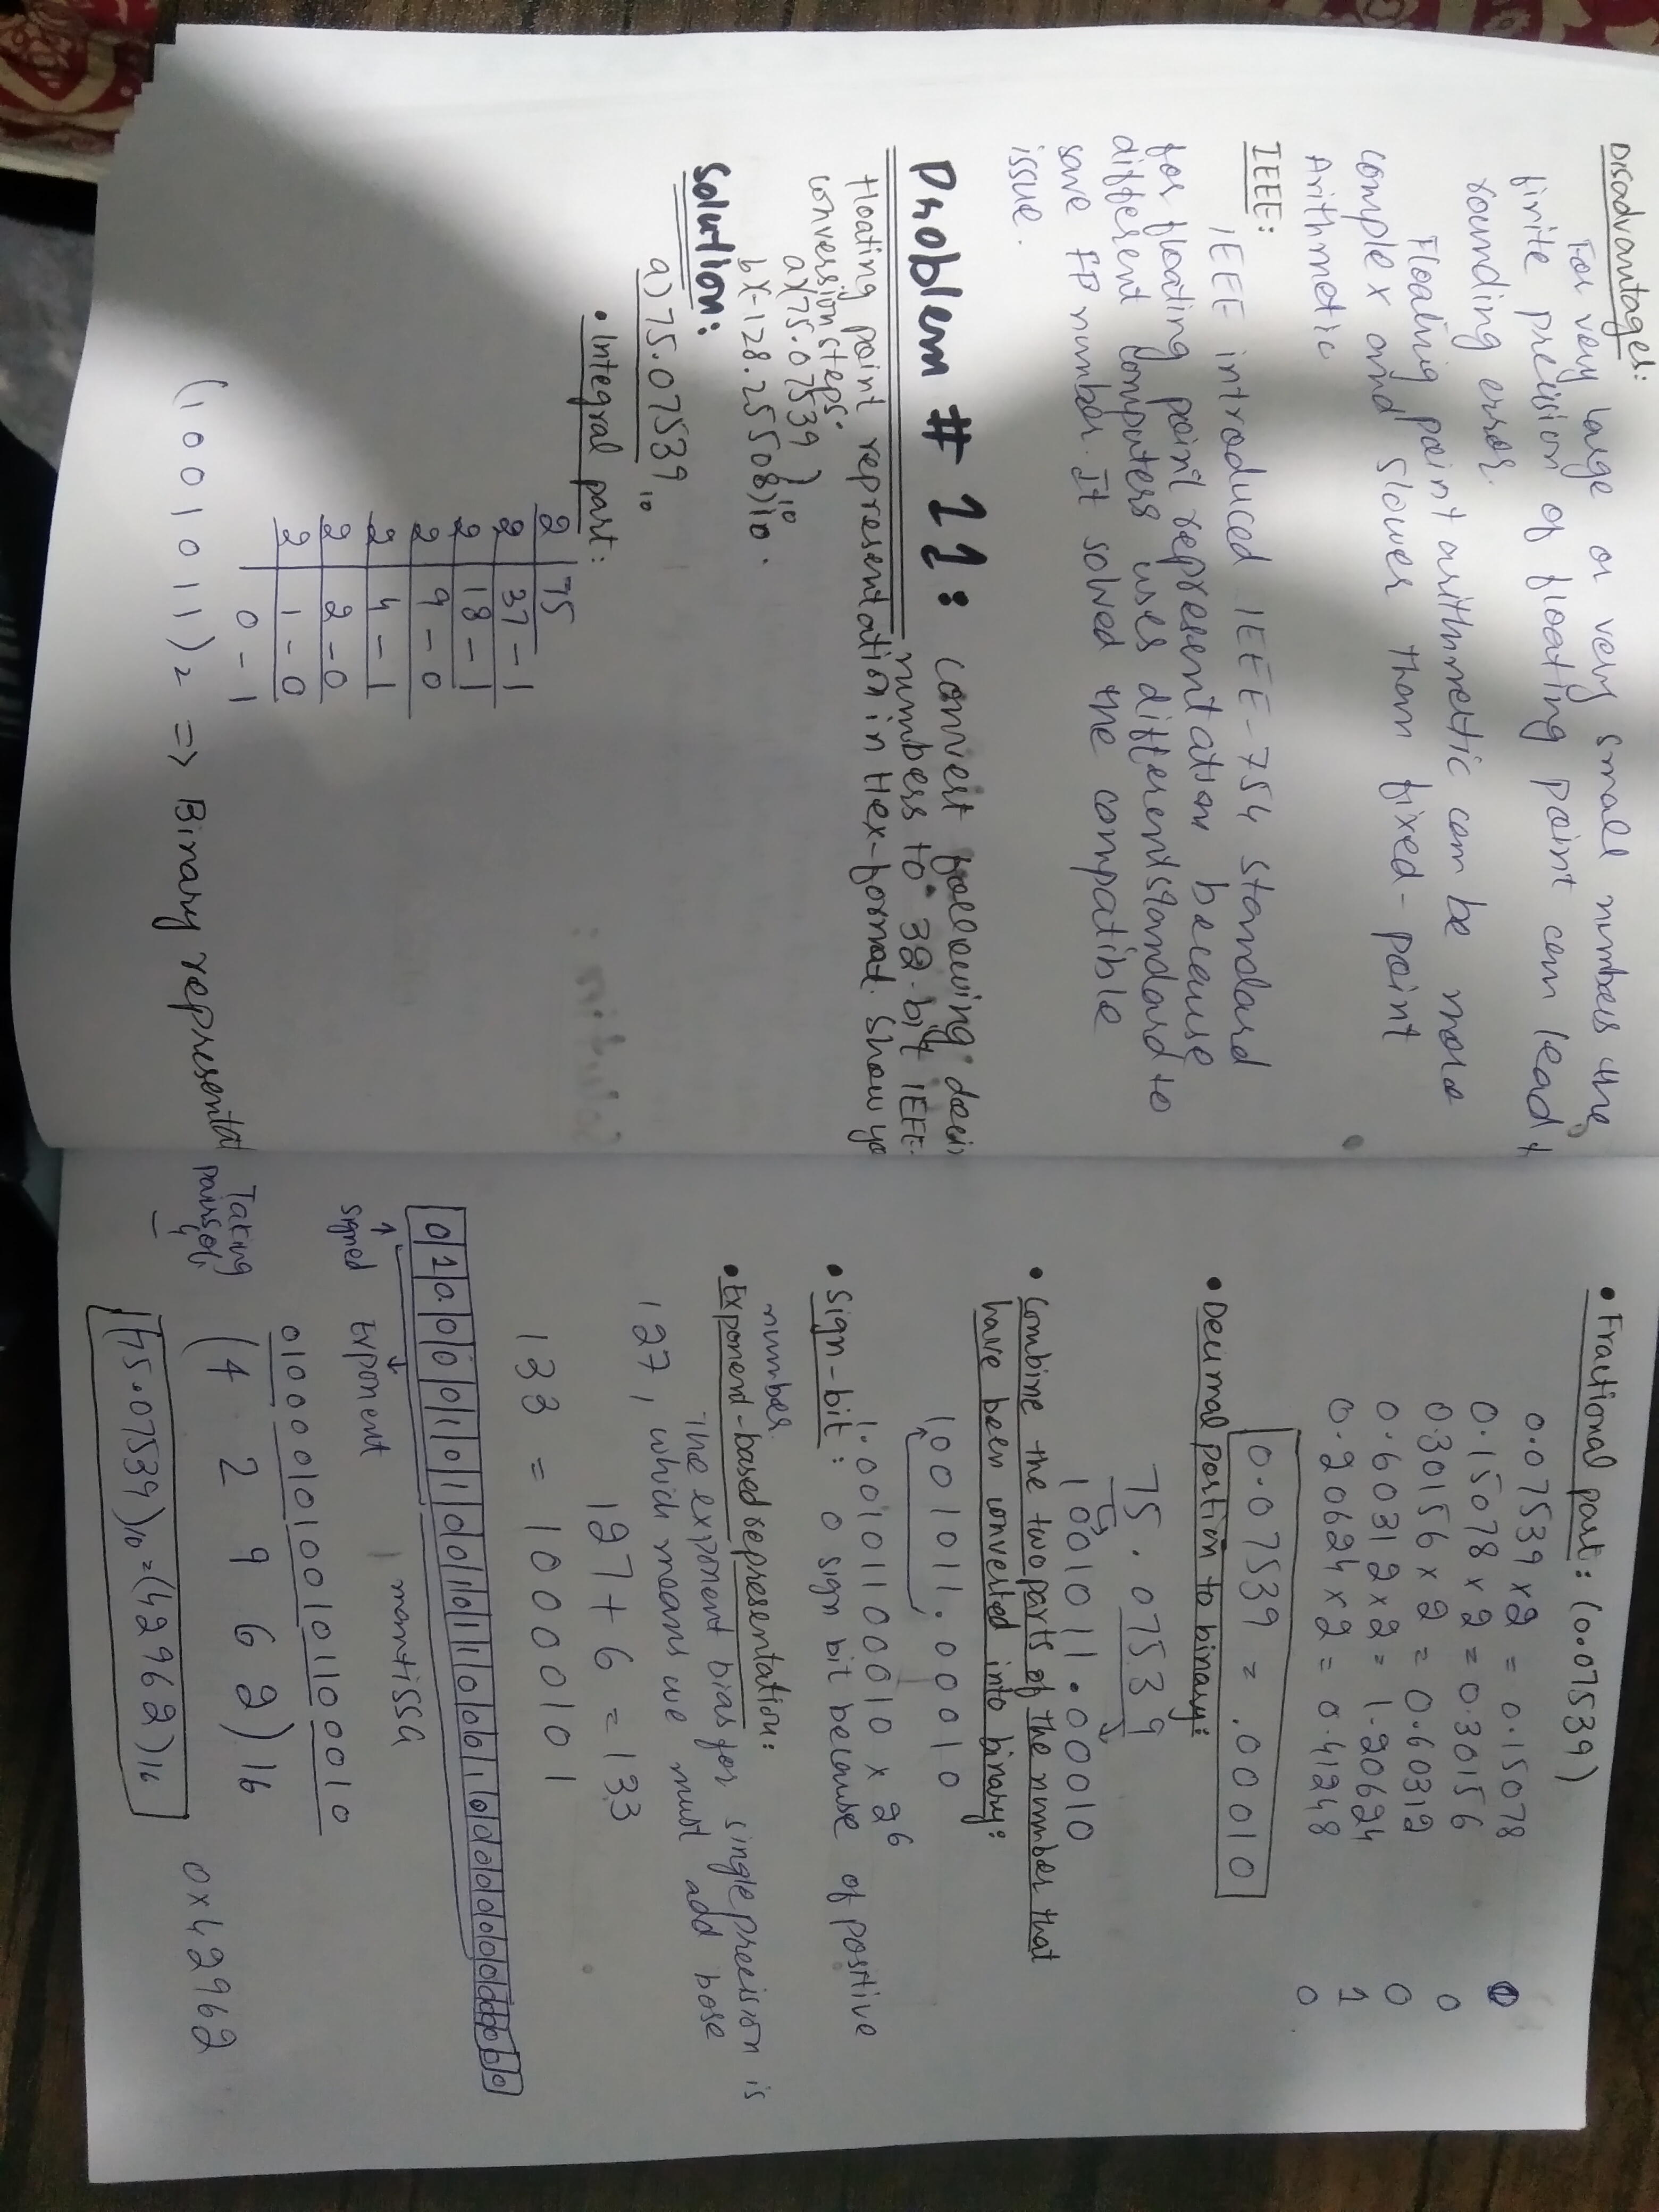 Disadvantages:
For very large or very small numbers the
finite precision of floating point can lead t
rounding error.
Floating point arithmetic can be more
complex and slower than fixed-point
Arithmetic
IEEE:
IEEE introduced IEEE-754 standard
for floating point representation because
different computers uses different standard to
save FP number. It solved the compatible
issue.
Problem # 11: convert following deci
numbers to 32-bit IEEE
floating point representation in Hex-format. Show yo
conversion steps.
a)(75.07539)10
b)(-128.25508)10.
Solution:
a) 75.07539 10
• Integral part:
2 | 75
2 | 37 - 1
2 | 18 - 1
2 | 9 - 0
2 | 4 - 1
2 | 2 - 0
2 | 1 - 0
0 - 1
(1001011)2 => Binary representat
• Fractional part: (0.07539)
0.07539 x 2 = 0.15078 0
0.15078 x 2 = 0.30156 0
0.30156 x 2 = 0.60312 0
0.60312 x 2 = 1.20624 1
0.20624 x 2 = 0.41248 0
• Decimal portion to binary:
0.07539 = .00010
75.07539
1001011.00010
• Combine the two parts of the number that
have been converted into binary:
1001011.00010
1.00101100010 x 2^6
• Sign-bit: 0 sign bit because of positive
number.
• Exponent-based representation:
The exponent bias for single precision is
127, which means we must add base
127 + 6 = 133
133 = 10000101
signed exponent mantissa
Taking
pairs of 4
01000010100101100010
(4 2 9 6 2)16
(75.07539)10 = (42962)16
0x42962